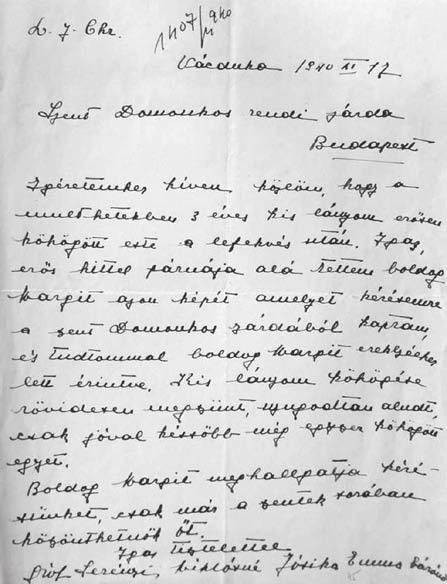 D. J. Chr.
1407/940
Vácduka 1940 XI 17
Szent Domonkos rendi zárda
Budapest
Igéretemhez híven közlöm, hogy a
mult hetekben 3 éves kis lányom erősen
köhögött este a lefekvés után. Igaz,
erős hittel párnája alá tettem boldog
Margit azon képét amelyet kérésemre
a szent Domonkos zárdából kaptam,
és tudtommal boldog Margit ereklyéhez
lett érintve. Kis lányom köhögése
rövidesen megszünt, nyugodtan aludt
csak jóval később még egyszer köhögött
egyet.
Boldog Margit meghallgatja kéré-
sünket, csak már a szentek sorában
köszönthetnők Őt.
Igaz tisztelettel
Gróf Serényi Miklósné Jósika Emma